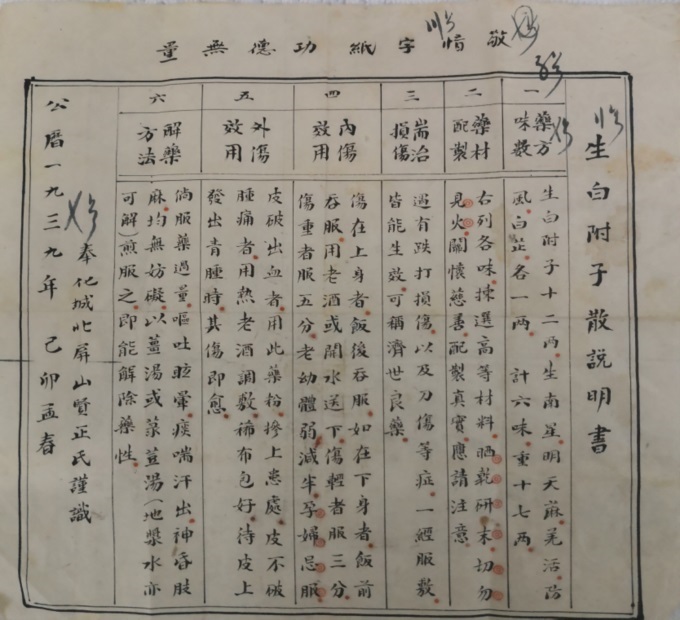 敬惜字紙功德無量
生白附子散說明書
一
藥方
味數
生白附子十二兩生南星明天麻羌活防
風白芷各一兩 計六味重十七兩
二
藥材
配製
右列各味揀選高等材料晒乾研末切勿
見火關懷慈善配製真實應請注意
三
耑治
損傷
遇有跌打損傷以及刀傷等症一經服敷
皆能生效可稱濟世良藥
四
內傷
效用
傷在上身者飯後吞服如在下身者飯前
吞服用老酒或開水送下傷輕者服三分
傷重者服五分老幼體弱減半孕婦忌服
五
外傷
效用
皮破出血者用此藥粉摻上患處皮不破
腫痛者用熱老酒調敷稀布包好待皮上
發出青腫時其傷即愈
六
解藥
方法
倘服藥過量嘔吐眩暈痰喘汗出神昏肢
麻均無妨礙以薑湯或菉荳湯(地漿水亦
可解)煎服之即能解除藥性
奉化城北屏山賢正氏謹識
公曆一九三九年 己卯孟春